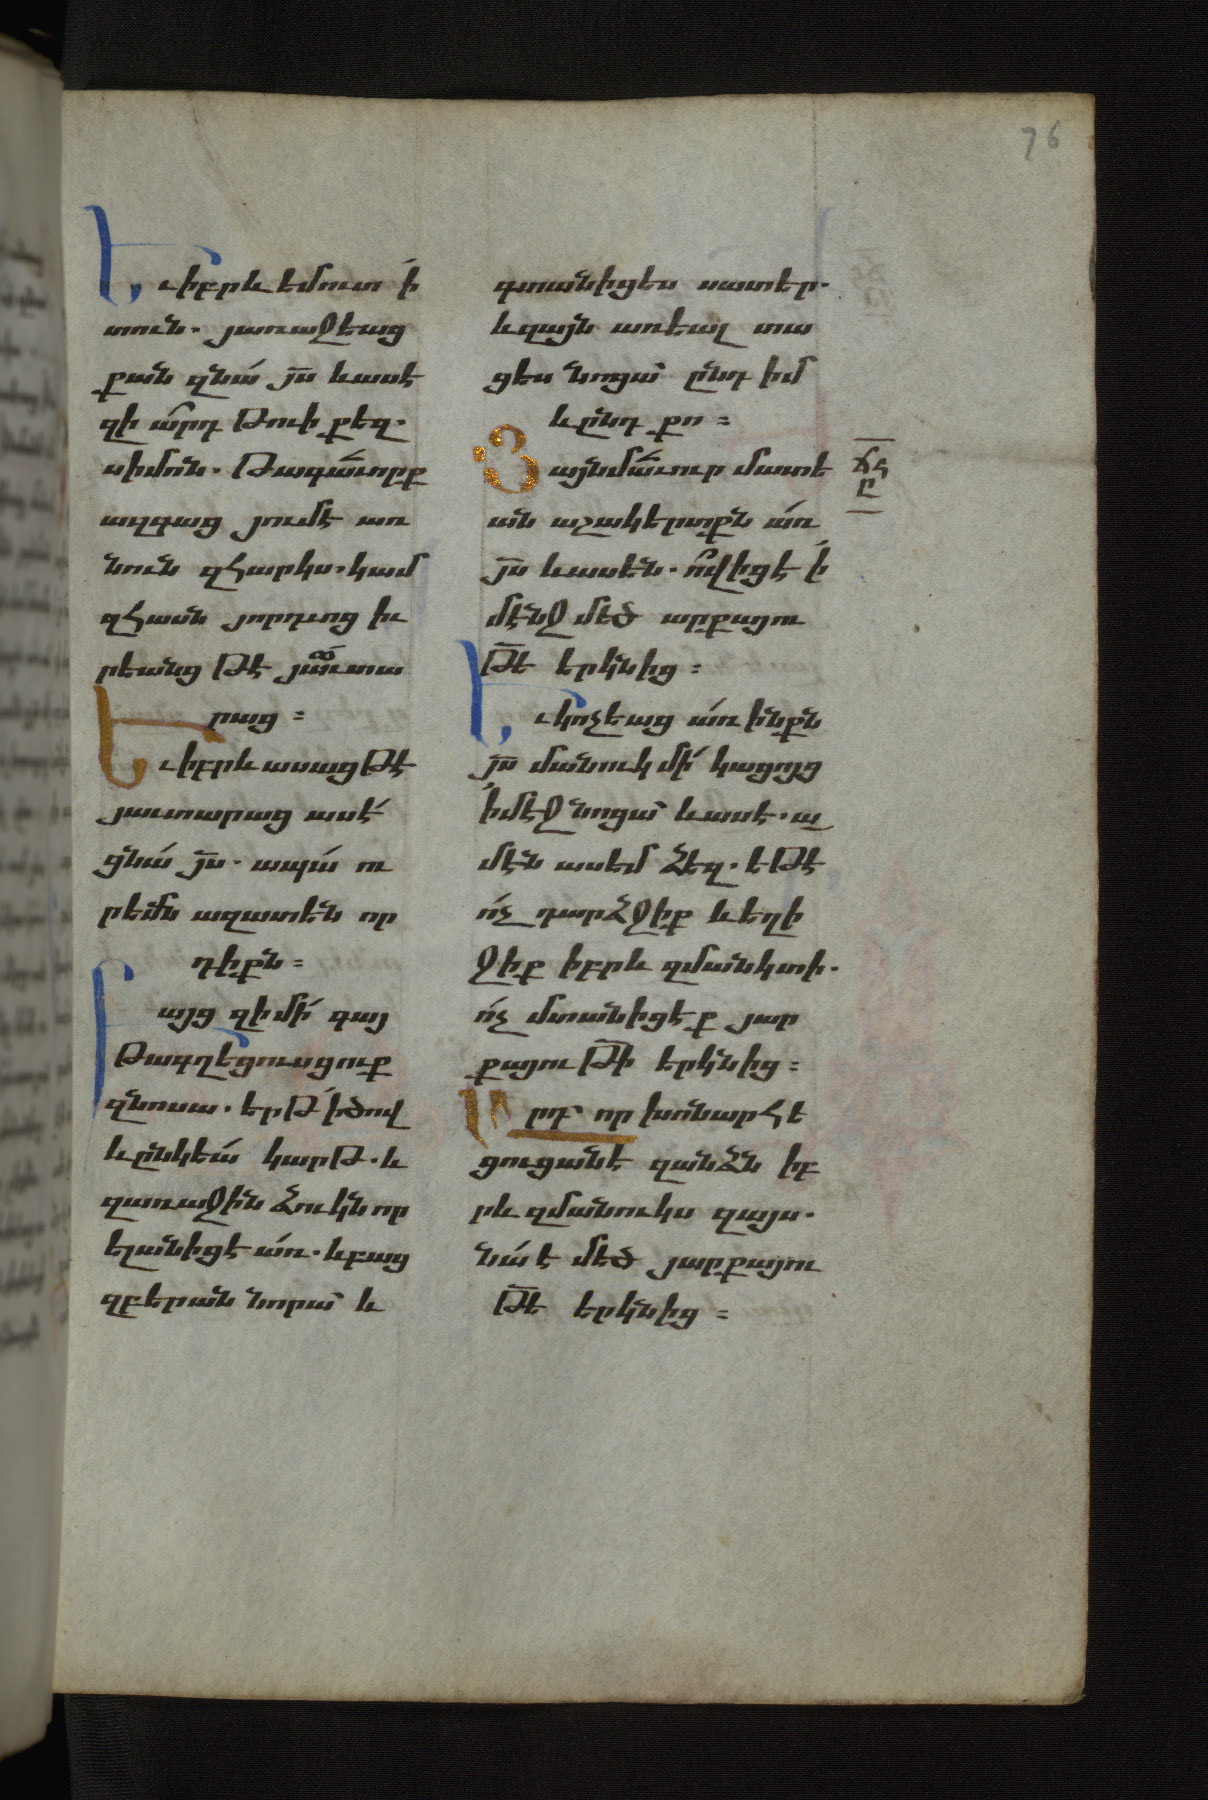 76
Եւ իբրև եմուտ ի
տուն. յառաջեաց
քան զնա՛ յս̅ և ասէ
զի ա՞րդ թուի քեզ.
սիմոն. թագա՛ւորք
ազգաց յումէ՞ առ
նուն զհարկս. կամ
զհասն յորդւոց իւ
րեանց թէ յաւտա
րաց :
Եւ իբրև ասաց թէ
յաւտարաց ասէ՛
ցնա՛ յս̅. ապա՛ ու
րեմն ազատ են որ
դիքն :
Բայց զի մի՛ գայ
թագղեցուսցուք
զնոսա. երթ ի ծով
և ընկեա՛ կարթ. և
զառաջին ձուկն որ
ելանիցէ ա՛ռ. և բաց
զբերան նորա՛ և
գտանիցես սատեր.
և զայն առեալ տա
ցես նոցա՛ ընդ իմ
և ընդ քո :
Յայնմա՛ւուր մատե
ան աշակերտքն ա՛ռ
յս̅ և ասեն. ո՞վ իցէ ի
մէնջ մեծ արքայու
թե̅ երկնից :
ՃՀ
Ը
Եւ կոչեաց ա՛ռ ինքն
յս̅ մանուկ մի՛ կացոյց
ի մէջ նոցա՛ և ասէ. ա
մէն ասեմ ձեզ. եթէ
ո՛չ դարձջիք և եղի
ջիք իբրև զմանկտի.
ո՛չ մտանիցէք յար
քայութի̅ երկնից :
Արդ՝ որ խոնարհե
ցուցանէ զանձն իբ
րև զմանուկս զայս.
նա՛ է մեծ յարքայու
թե̅ երկնից :